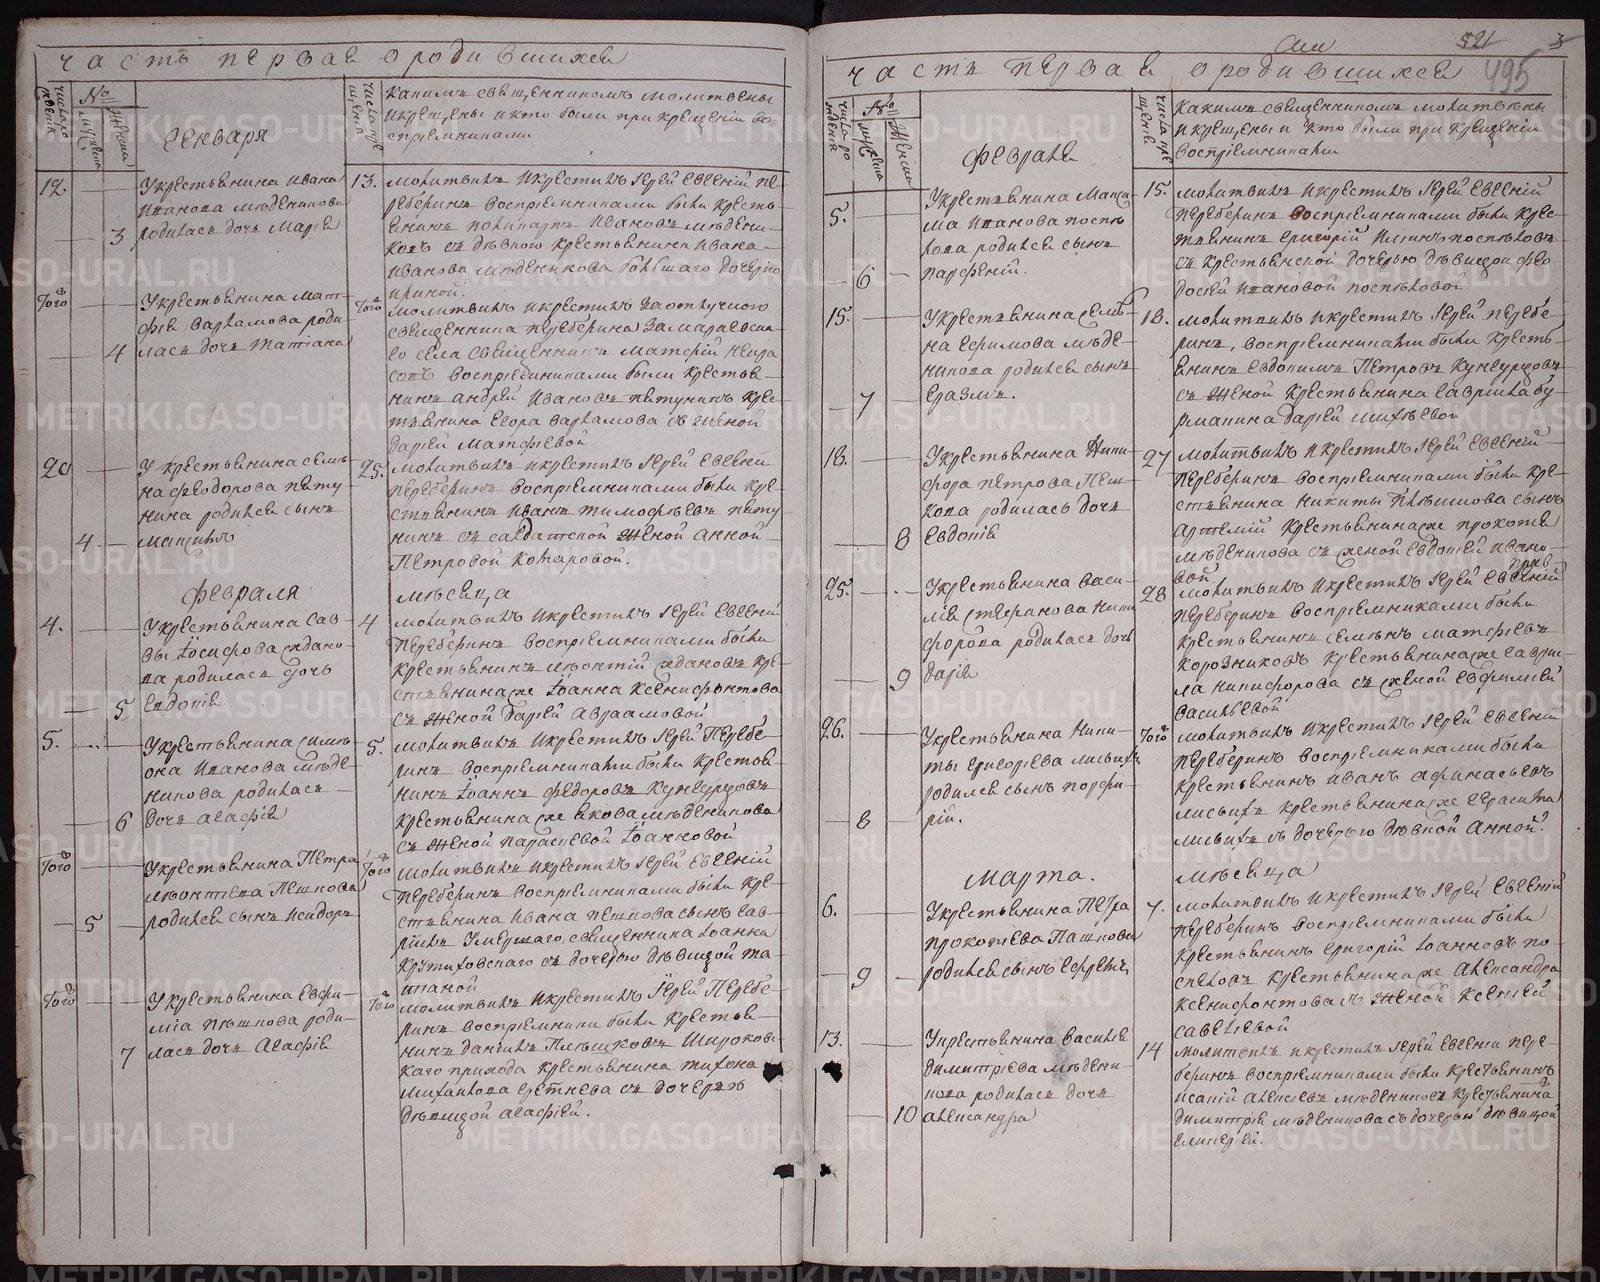 часть первая о родившихся
числа рождения
№
мужеска
женска
Генваря
числа крещения
какимъ священникомъ молитвены
и крещены и кто были при крещеніи во
спріемниками
12.
3
У крестьянина Ивана
Иванова Мѣденикова
родилась дочь Марія
13.
молитвилъ и крестилъ Іерей Евгеній Пе
реберинъ воспріемниками были кресть
янинъ Поликарпъ Ивановъ Мѣдени
ковъ съ дѣвкою крестьянина Ивана
Иванова Мѣденикова большаго дочерью
Ириной.
Того
4
У крестьянина Мат
фія Варламова роди
лась дочь Татіана
Того
молитвилъ и крестилъ за отлучкою
священника Переберина Замараевска
го села священникъ Матфій
воспріемниками были крестья
нинъ Андрей Ивановъ Пѣтунинъ кре
стьянина Егора Варламова съ женой
Дарьей Матфіевой
20
4
У крестьянина Семе
на Феодорова Пѣту
нина родился сынъ
25.
молитвилъ и крестилъ Іерей Евгени
Переберинъ воспріемниками были кре
стьянинъ Иванъ Тимофѣевъ Пѣту
нинъ съ салдатской женой Анной
Петровой Комаровой.
Февраля
мѣсяца
4.
5
У крестьянина Сав
вы Іосифова Ждано
ва родилась дочь
Евдокія
4
молитвилъ и крестилъ Іерей Евгеній
Переберинъ воспріемниками были
крестьянинъ Леонтій Ждановъ кре
стьянина же Іоанна Ксенофонтова
съ женой Дарьей Авраамовой
5.
6
У крестьянина Симе
она Иванова Мѣде
никова родилась
дочь Агафія
5.
молитвилъ и крестилъ Іерей Перебе
ринъ воспріемниками были крестья
нинъ Іоаннъ Федоровъ Кунгурцовъ
крестьянина же Якова Мѣденикова
съ женой Параскевой Іоанновой
Того
5
У крестьянина Петра
Леонтіева Пешкова
родился сынъ Исидоръ
Того
молитвилъ и крестилъ Іерей Евгеній
Переберинъ воспріемниками были кре
стьянина Ивана Пешкова сынъ Гав
ріилъ умершаго священника Іоанна
Крутиховскаго съ дочерью дѣвицой Та
тіаной
Того
7
У крестьянина Евфи
мія Пѣшкова роди
лась дочь Агафія
Того
молитвилъ и крестилъ Іерей Перебе
ринъ воспріемники были крестья
нинъ Даніилъ Плѣшковъ Широковс
каго прихода крестьянина Тихона
Михаилова Сретнева съ дочерью
дѣвицой Агафіей.
521
3
495
часть первая о родившихся
числа рождения
№
мужеска
женска
Февраля
числа крещения
какимъ священникомъ молитвены
и крещены и кто были при крещеніи
воспріемниками
5.
6
У крестьянина Макси
ма Иванова Поспе
лова родился сынъ
Парфеній.
15.
молитвилъ и крестилъ Іерей Евгеній
Переберинъ воспріемниками были крес
тьянинъ Григорій Ильинъ Поспѣловъ
съ крестьянской дочерью дѣвицой Фео
досьей Ивановой Поспѣловой
15.
7
У крестьянина Семе
на Ефимова Мѣде
никова родился сынъ
Еразмъ.
18.
молитвилъ и крестилъ Іерей Перебе
ринъ, воспріемниками были кресть
янинъ Евдокимъ Петровъ Кунгурцовъ
съ женой крестьянина Гавріила Бу
рмакина Дарьей
18.
8
У крестьянина Ники
фора Петрова Пеш
кова родилась дочь
Евдокія
27
молитвилъ и крестилъ Іерей Евгеній
Переберинъ воспріемниками были кре
стьянина Никиты сынъ
Артемій крестьянина же Прокопія
Мѣденикова съ женой Евдокіей Ивано
вой.
25.
9
У крестьянина Васи
лія Стефанова Ники
форова родилась дочь
Дарія
28
молитвилъ и крестилъ Іерей Евгеній
Переберинъ воспріемниками были
крестьянинъ Семенъ Матфіевъ
Коровниковъ крестьянина же Гаври
ла Никифорова съ женой Евфиміей
Васильевой
26.
8
У крестьянина Ники
ты Григорьева Лисьихъ
родился сынъ Порфи
рій.
Того
молитвилъ и крестилъ Іерей Евгеній
Переберинъ воспріемниками были
крестьянинъ Иванъ Афанасьевъ
Лисьихъ крестьянина же Герасима
Лисьихъ съ дочерью дѣвкой Анной.
Марта.
мѣсяца
6.
9
У крестьянина Петра
Прокопьева Пашкова
родился сынъ Ефремъ
7.
молитвилъ и крестилъ Іерей Евгеній
Переберинъ воспріемниками были
крестьянинъ Григорій Іоанновъ По
спеловъ крестьянина же Александра
Ксенофонтова съ женой Ксеніей
Савельевой
13.
10
У крестьянина Василія
Димитріева Мѣдени
кова родилась дочь
Александра
14
молитвилъ и крестилъ Іерей Евгеній Пере
беринъ воспріемниками были крестьянинъ
Исакій Алексѣевъ Мѣдениковъ крестьянина
Димитрія Мѣденикова съ дочерью дѣвицой
Гликеріей.
METRIKI.GASO-URAL.RU